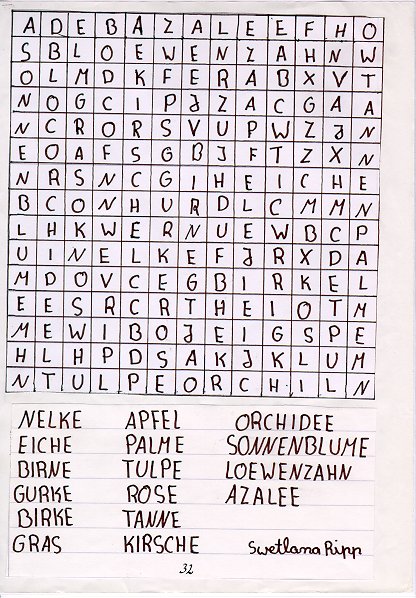 A D E B A Z A L E E F H O
S B L O E W E N Z A H N W
O L M D K F E R A B X V T
N O G C I P J Z A C G A A
N C R O R S V U P W Z J N
E O A F S G B J F T Z X N
N R S N C G I H E I C H E
B C O N H U R D L C M M N
L H K W E R N U E W B C P
U I N E L K E F J R X D A
M D O V C E G B I R K E L
E E S R C R T H E I O T M
M E W I B O J E I G S P E
H L H P D S A K J K L U M
N T U L P E O R C H I L N
NELKE APFEL ORCHIDEE
EICHE PALME SONNENBLUME
BIRNE TULPE LOEWENZAHN
GURKE ROSE AZALEE
BIRKE TANNE
GRAS KIRSCHE Swetlana Ripp
32